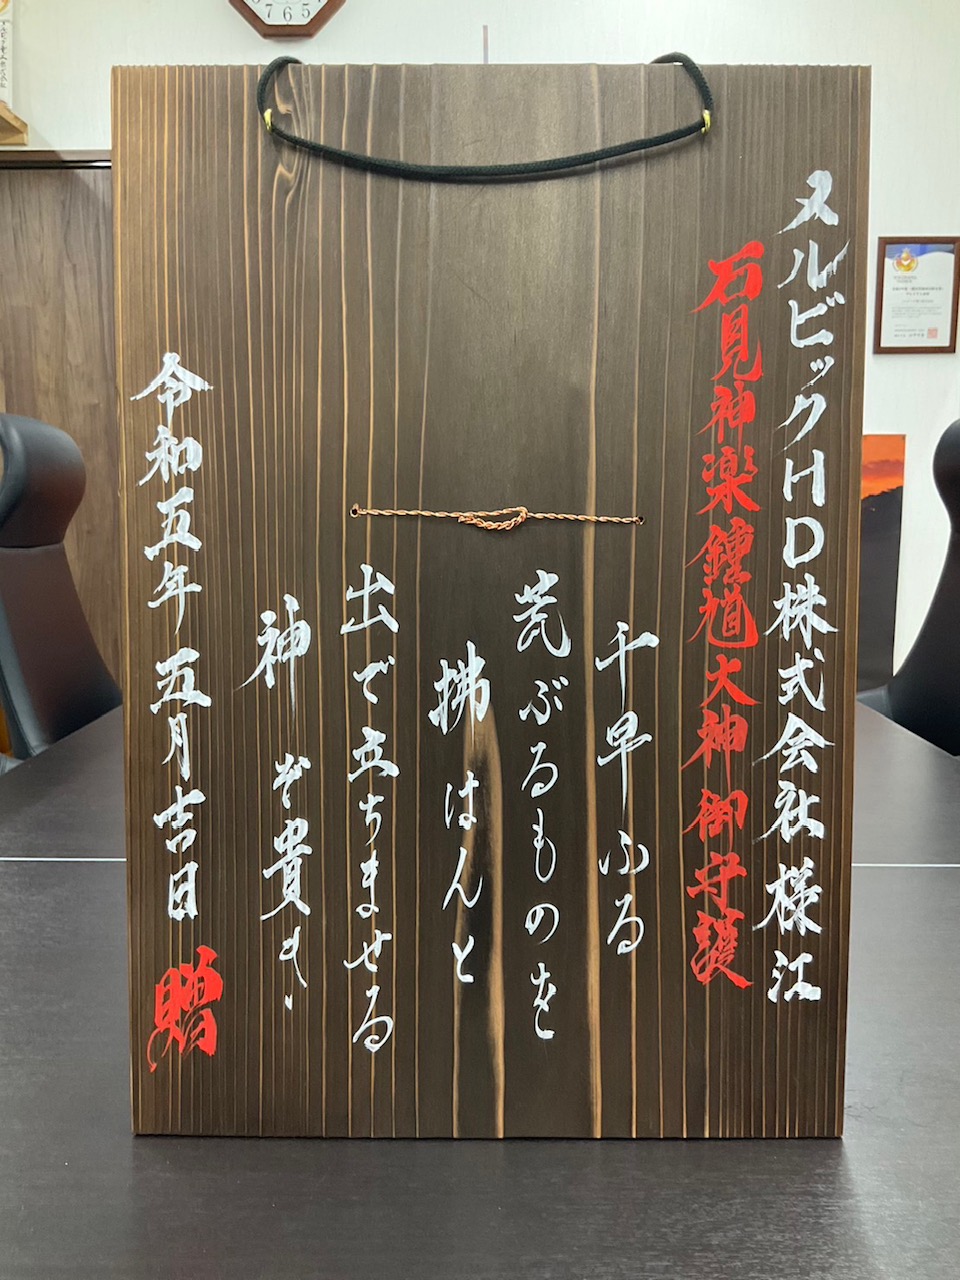 ヌルビックHD株式会社様江
石見神楽鍾馗大神御守護
千早ふる
荒ぶるものを
拂はんと
出で立ちませる
神ぞ貴き
令和五年五月吉日
贈
7 6 5